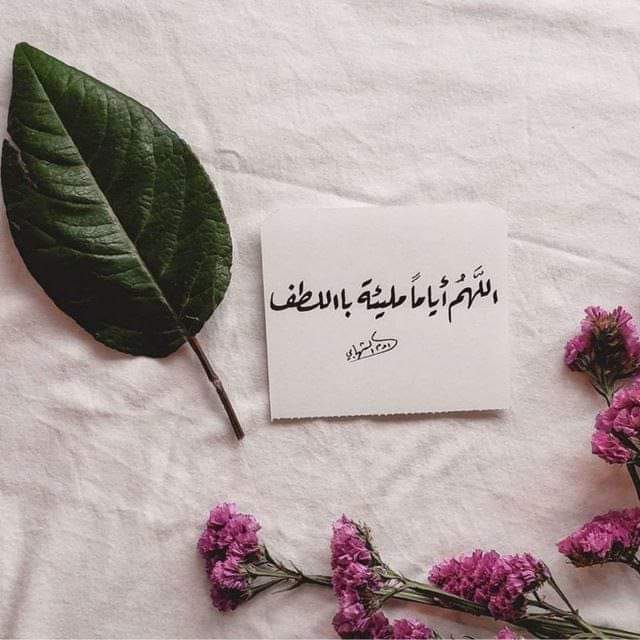 اللَّهُم أياماً مليئة باللطف